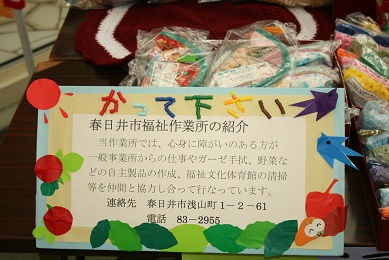 かって下さい
春日井市福祉作業所の紹介
当作業所では、心身に障がいのある方が
一般事業所からの仕事やガーゼ手拭、野菜な
どの自主製品の作成、福祉文化体育館の清掃
等を仲間と協力し合って行なっています。
連絡先 春日井市浅山町1-2-61
電話 83-2955